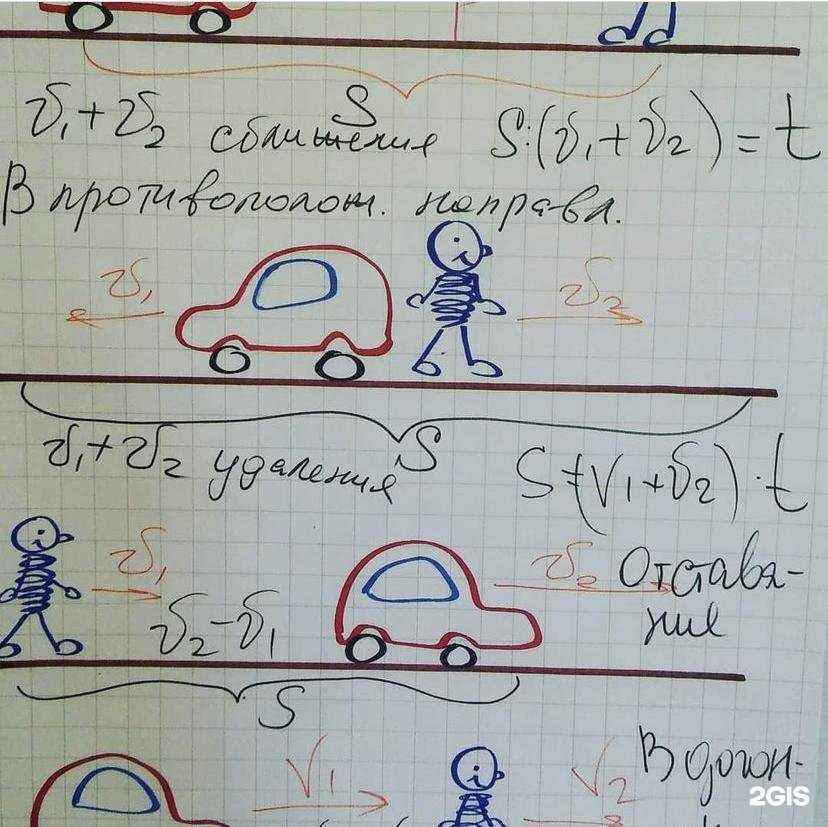 S
v₁+v₂ сближения S:(v₁+v₂)=t
В противополож. направл.
v₁ v₂
v₁+v₂ удаления S S=(v₁+v₂)·t
v₁ v₂ Отстава-
ние
v₂-v₁
S
V₁ V₂ В догон-
2GIS